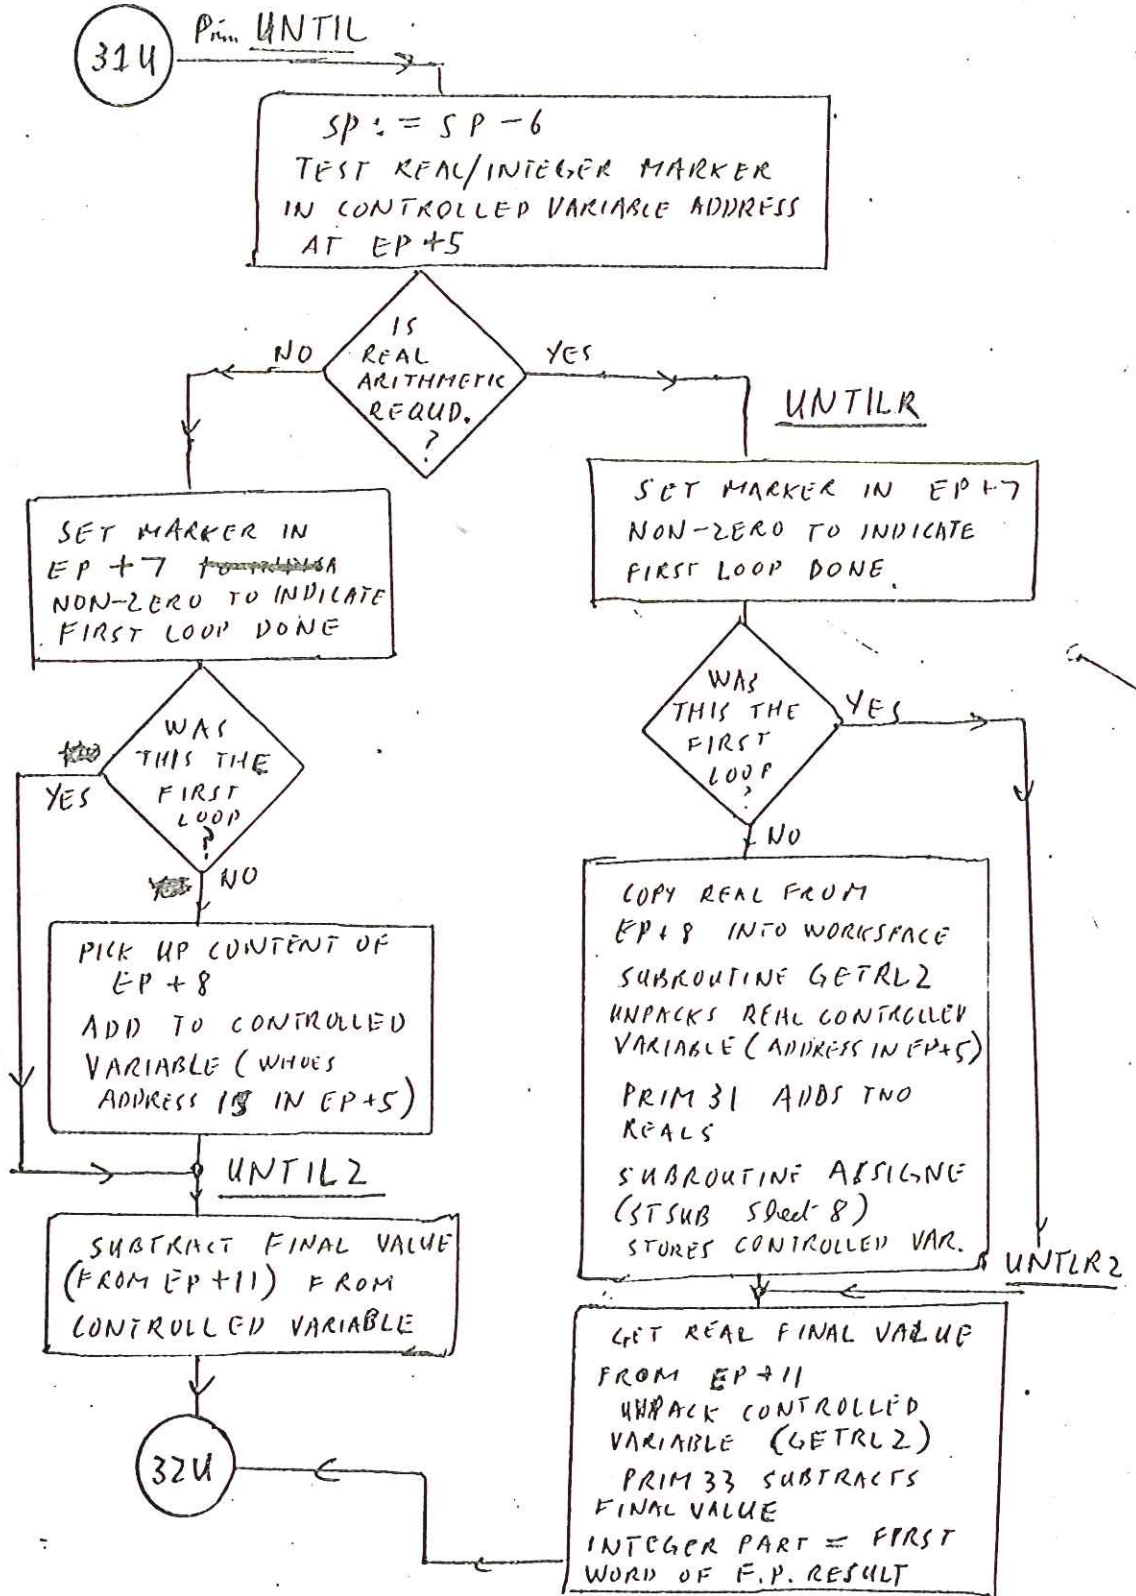 31U
Prim UNTIL
SP := SP -6
TEST REAL/INTEGER MARKER
IN CONTROLLED VARIABLE ADDRESS
AT EP+5
IS
REAL
ARITHMETIC
REQUD.
?
NO
YES
UNTILR
SET MARKER IN
EP +7
NON-ZERO TO INDICATE
FIRST LOOP DONE
SET MARKER IN EP+7
NON-ZERO TO INDICATE
FIRST LOOP DONE.
WAS
THIS THE
FIRST
LOOP
?
YES
NO
WAS
THIS THE
FIRST
LOOP
?
YES
NO
PICK UP CONTENT OF
EP +8
ADD TO CONTROLLED
VARIABLE (WHOES
ADDRESS IS IN EP+5)
COPY REAL FROM
EP+8 INTO WORKSPACE
SUBROUTINE GETRL2
UNPACKS REAL CONTROLLED
VARIABLE (ADDRESS IN EP+5)
PRIM 31 ADDS TWO
REALS
SUBROUTINE ASSIGNE
(STSUB Sheet 8)
STORES CONTROLLED VAR.
UNTIL2
UNTLR2
SUBTRACT FINAL VALUE
(FROM EP+11) FROM
CONTROLLED VARIABLE
GET REAL FINAL VALUE
FROM EP+11
UNPACK CONTROLLED
VARIABLE (GETRL2)
PRIM 33 SUBTRACTS
FINAL VALUE
INTEGER PART = FIRST
WORD OF F.P. RESULT
32U